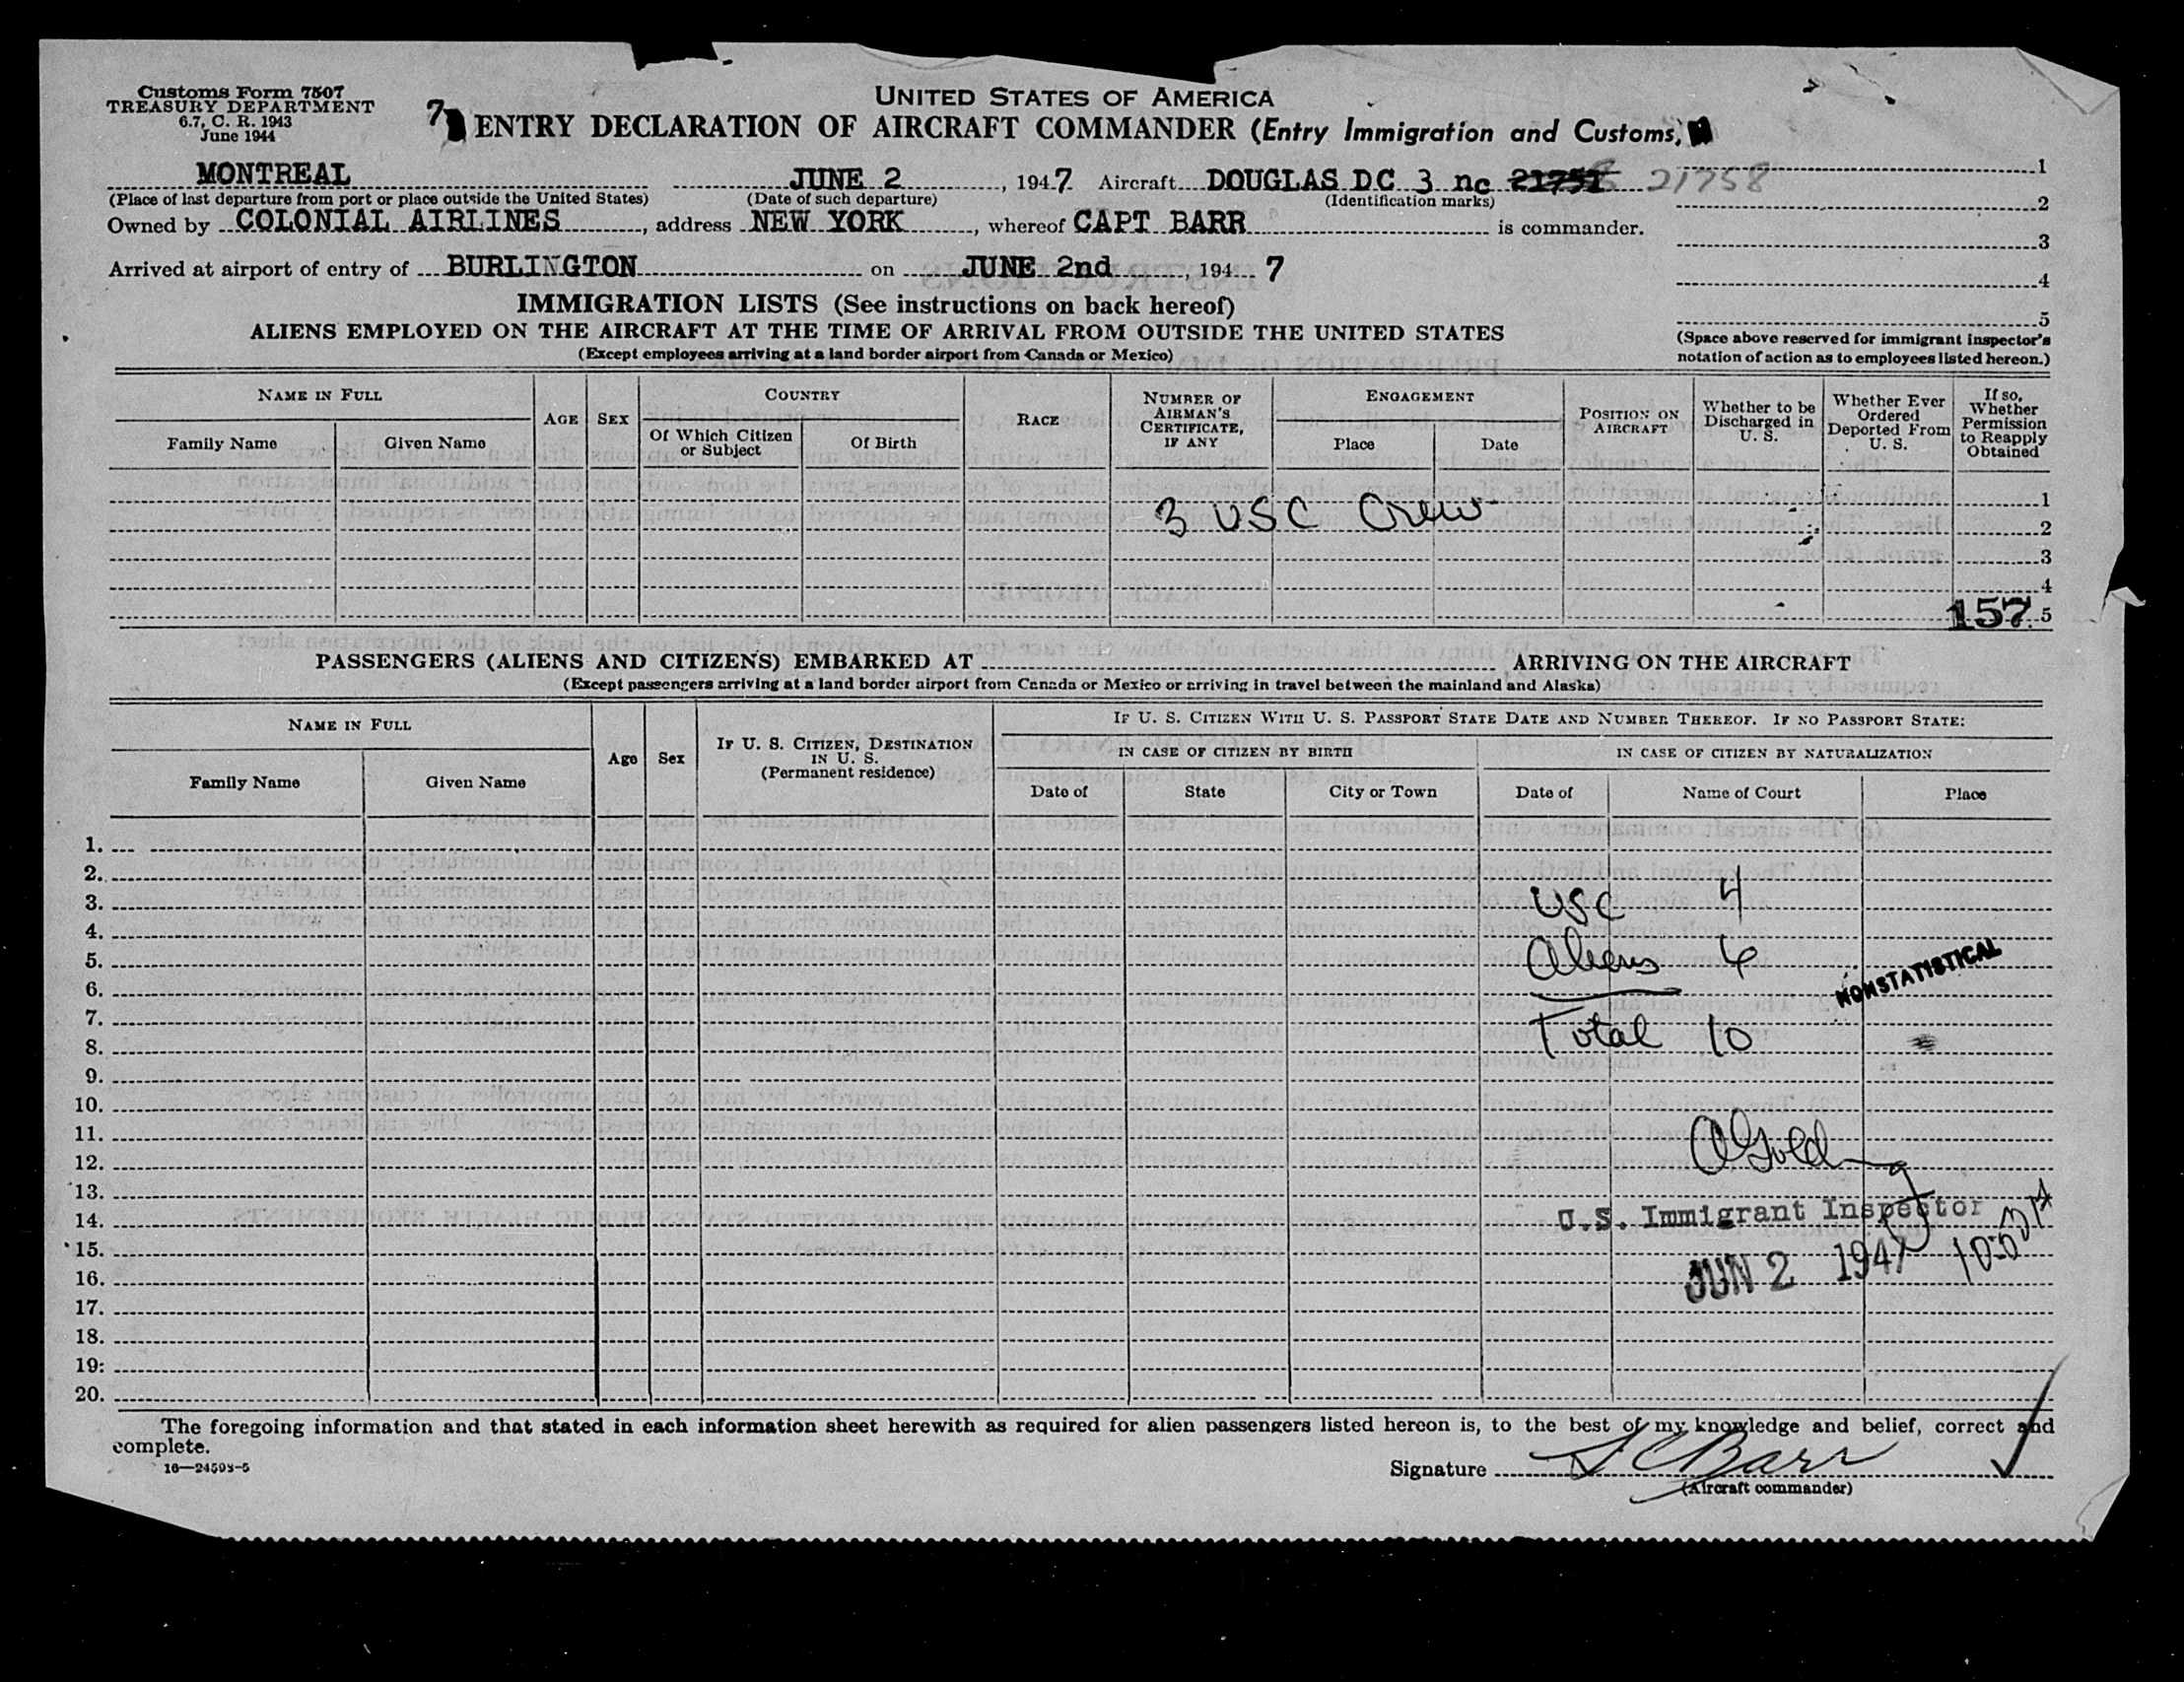 Customs Form 7507
TREASURY DEPARTMENT
6.7, C. R. 1943
June 1944
UNITED STATES OF AMERICA
7 ENTRY DECLARATION OF AIRCRAFT COMMANDER (Entry Immigration and Customs)
MONTREAL JUNE 2, 1947 Aircraft DOUGLAS DC 3 nc 21751 21758 1
(Place of last departure from port or place outside the United States) (Date of such departure) (Identification marks)
2
Owned by COLONIAL AIRLINES, address NEW YORK, whereof CAPT BARR is commander.
3
Arrived at airport of entry of BURLINGTON on JUNE 2nd, 194 7
4
IMMIGRATION LISTS (See instructions on back hereof)
5
ALIENS EMPLOYED ON THE AIRCRAFT AT THE TIME OF ARRIVAL FROM OUTSIDE THE UNITED STATES
(Except employees arriving at a land border airport from Canada or Mexico)
(Space above reserved for immigrant inspector's
notation of action as to employees listed hereon.)
NAME IN FULL
Family Name
Given Name
AGE
SEX
COUNTRY
Of Which Citizen
or Subject
Of Birth
RACE
NUMBER OF
AIRMAN'S
CERTIFICATE,
IF ANY
ENGAGEMENT
Place
Date
POSITION ON
AIRCRAFT
Whether to be
Discharged in
U. S.
Whether Ever
Ordered
Deported From
U. S.
If so,
Whether
Permission
to Reapply
Obtained
1
3 USC Crew 2
3
4
157 5
PASSENGERS (ALIENS AND CITIZENS) EMBARKED AT ARRIVING ON THE AIRCRAFT
(Except passengers arriving at a land border airport from Canada or Mexico or arriving in travel between the mainland and Alaska)
NAME IN FULL
Family Name
Given Name
Age
Sex
IF U. S. CITIZEN, DESTINATION
IN U. S.
(Permanent residence)
IF U. S. CITIZEN WITH U. S. PASSPORT STATE DATE AND NUMBER THEREOF. IF NO PASSPORT STATE:
IN CASE OF CITIZEN BY BIRTH
IN CASE OF CITIZEN BY NATURALIZATION
Date of
State
City or Town
Date of
Name of Court
Place
1.
2.
3. USC 4
4.
5. Aliens 6
6. NONSTATISTICAL
7.
8. Total 10
9.
10.
11.
12.
13.
14. U.S. Immigrant Inspector
15.
16. JUN 2 1947
17.
18.
19.
20.
The foregoing information and that stated in each information sheet herewith as required for alien passengers listed hereon is, to the best of my knowledge and belief, correct and
complete.
16—24593-5
Signature Barr
(Aircraft commander)